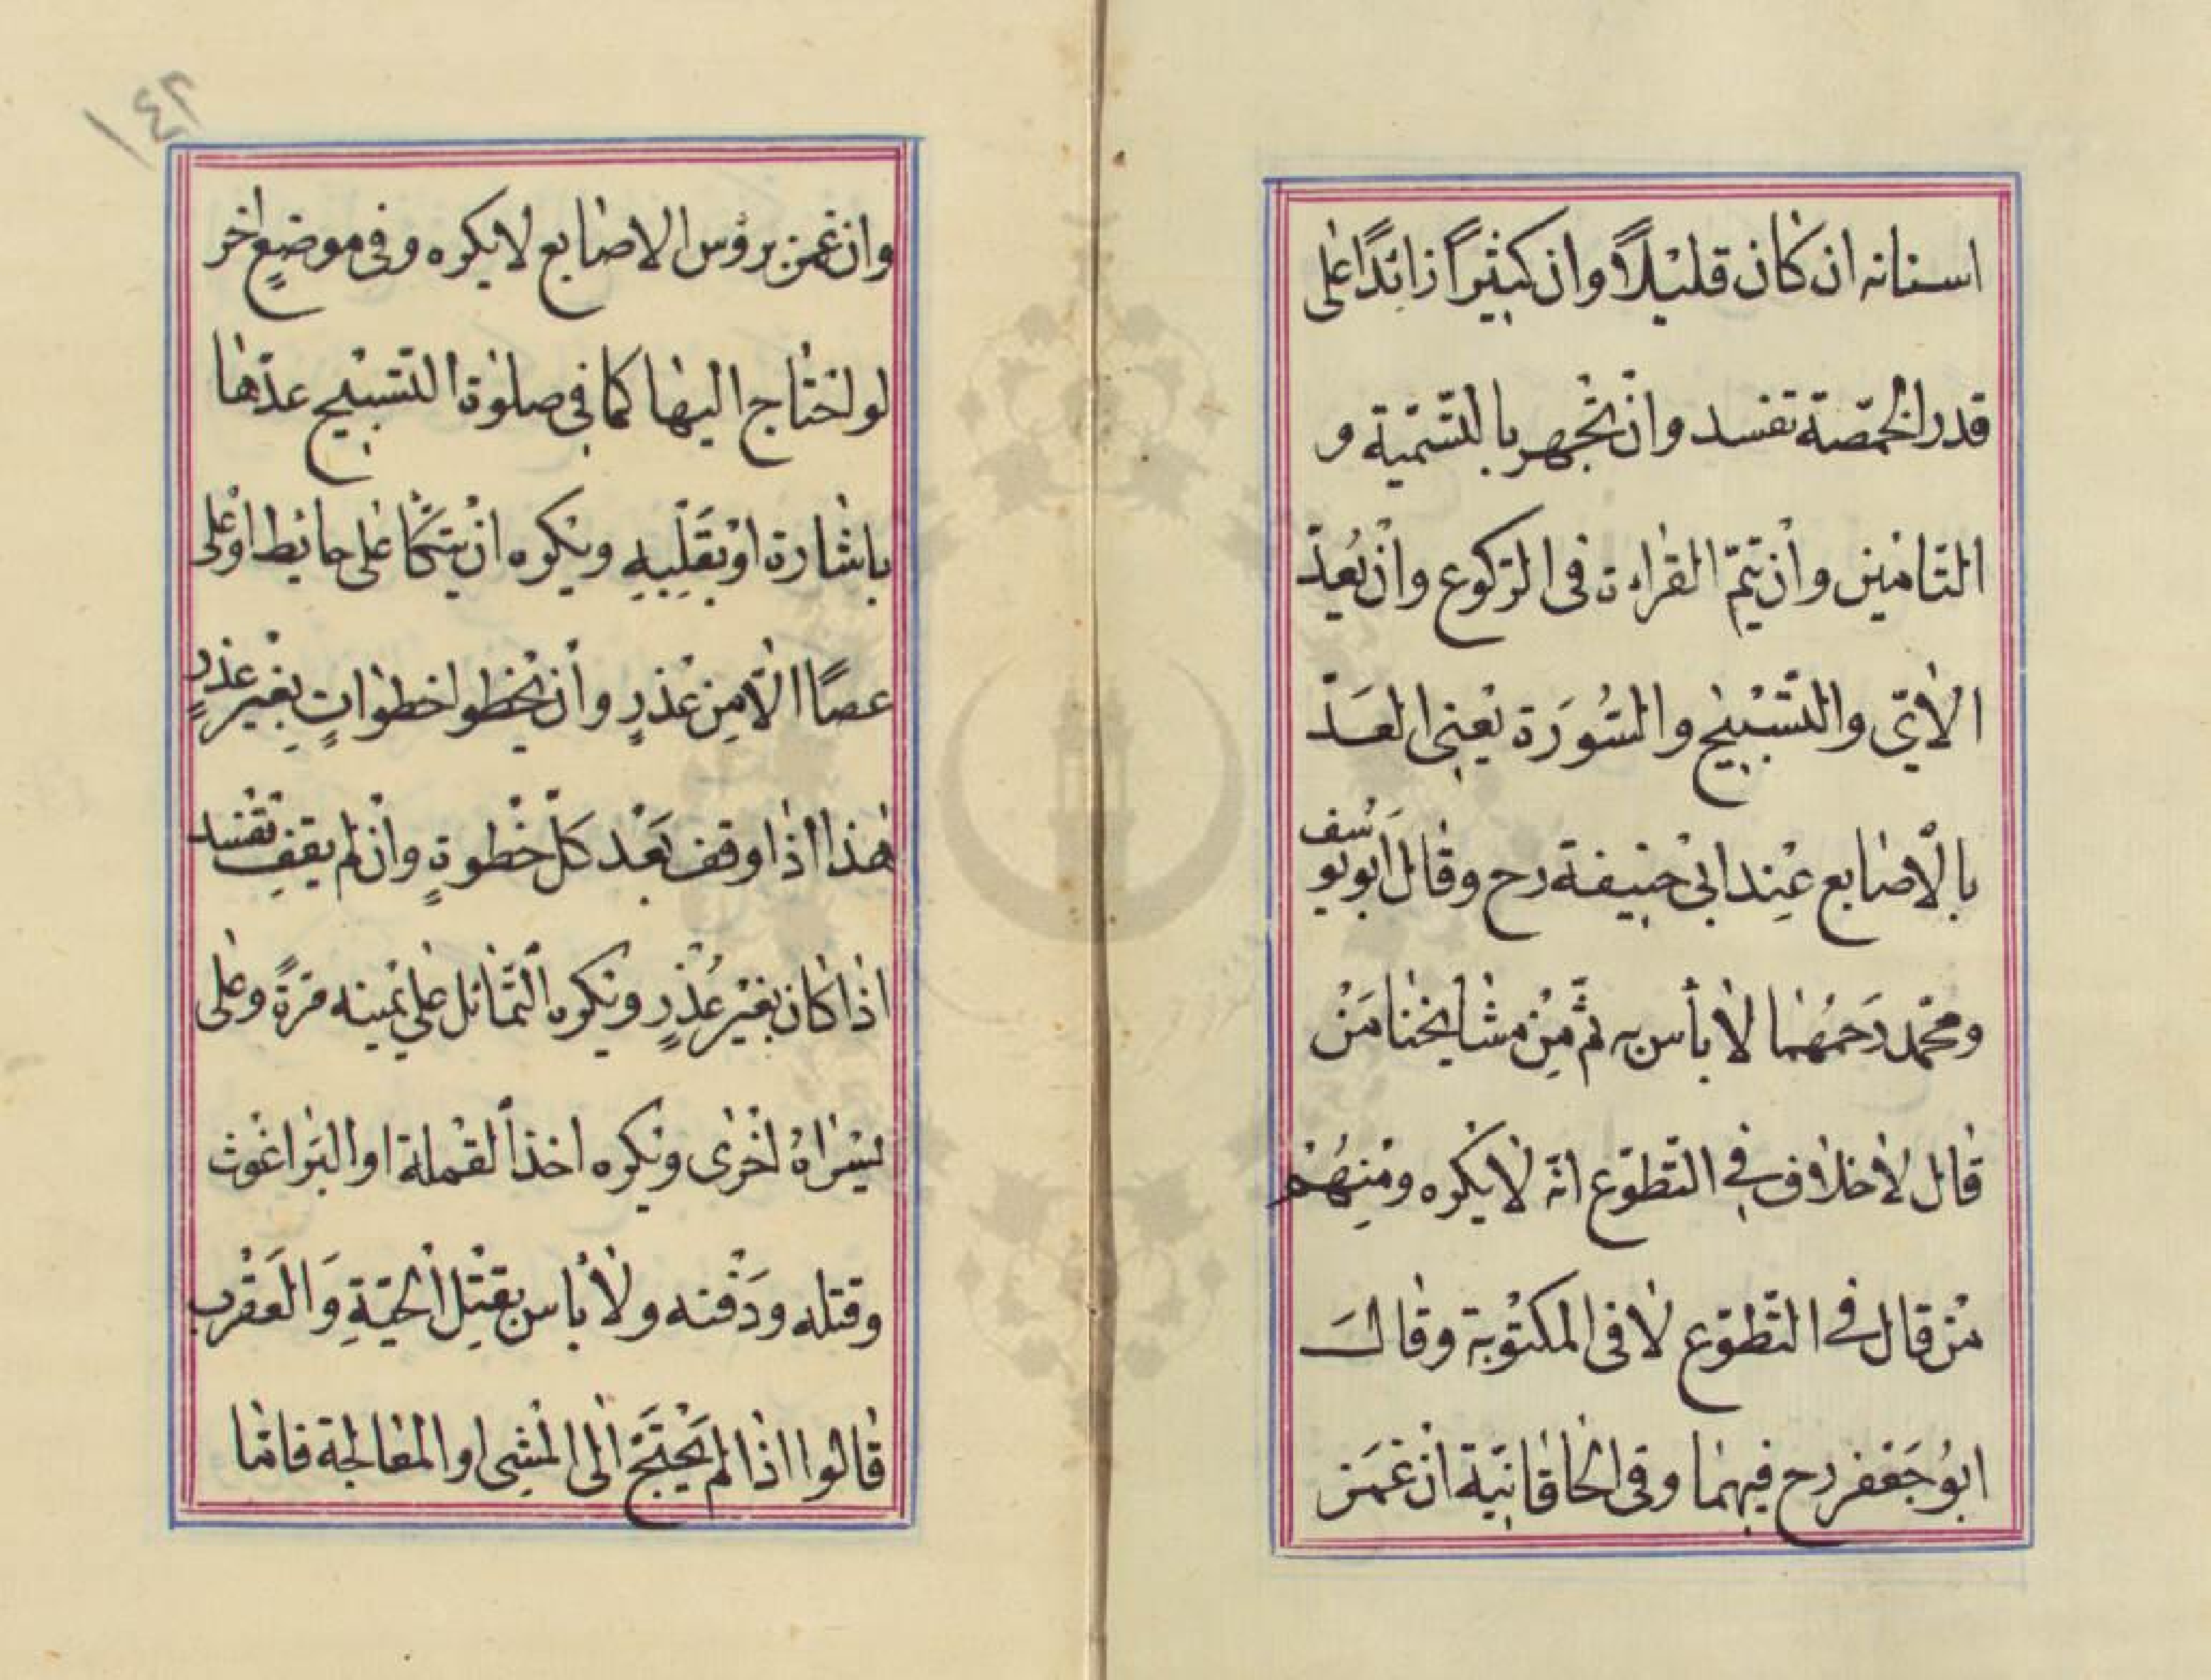 اسنانه ان كان قليلاً وان كثيراً زائداً على
قدر الحمّصة تفسد وان يجهر بالتّسمية و
التامين وأن يتمّ القراءة فى الركوع وأن يعدّ
الاٰتى والتّسبيح والسُورَة يعنى العَدّ
بالاصابع عِند ابى حنيفة رح وقال أبو يوسُف
ومحمّد رَحمهُما لا بأس به ثمّ مِنْ مشايخنا مَنْ
قال لا خلاف فى التّطوّع انه لا يكره ومنهُم
مَن قال فى التّطوّع لا فى المكتوبة وقالَ
ابُو جَعْفر رح فيهما وفى الخاقانيّة ان غَمَز
١٤٢
وان غمز برؤس الاصابع لا يكره وفى موضعٍ اخر
لو احتاج اليها كما فى صلوة التّسبيح عدّها
باشارة اوْ بقَلِبهِ ويكره انْ يتّكأ على حايط اوْ على
عصًا الّا مِن عُذرٍ وأن يخطو خطواتٍ بِغيرِ عذرٍ
هٰذا اذا وقف بَعْد كلّ خُطوةٍ وان لم يقفِ تفسد
اذا كان بغيْرِ عُذْرٍ ويكره التّمائل على يمينه مرّةً وعلى
يسْراهُ اخْرٰى ويكره اخذ القملة او البَراغوث
وقتله ودَفْنه ولا بأس بقتْلِ الحيّةِ وَالعَقْرب
قالوا اذا لم يَحْتَجْ الى المشى او المعالجة فامّا